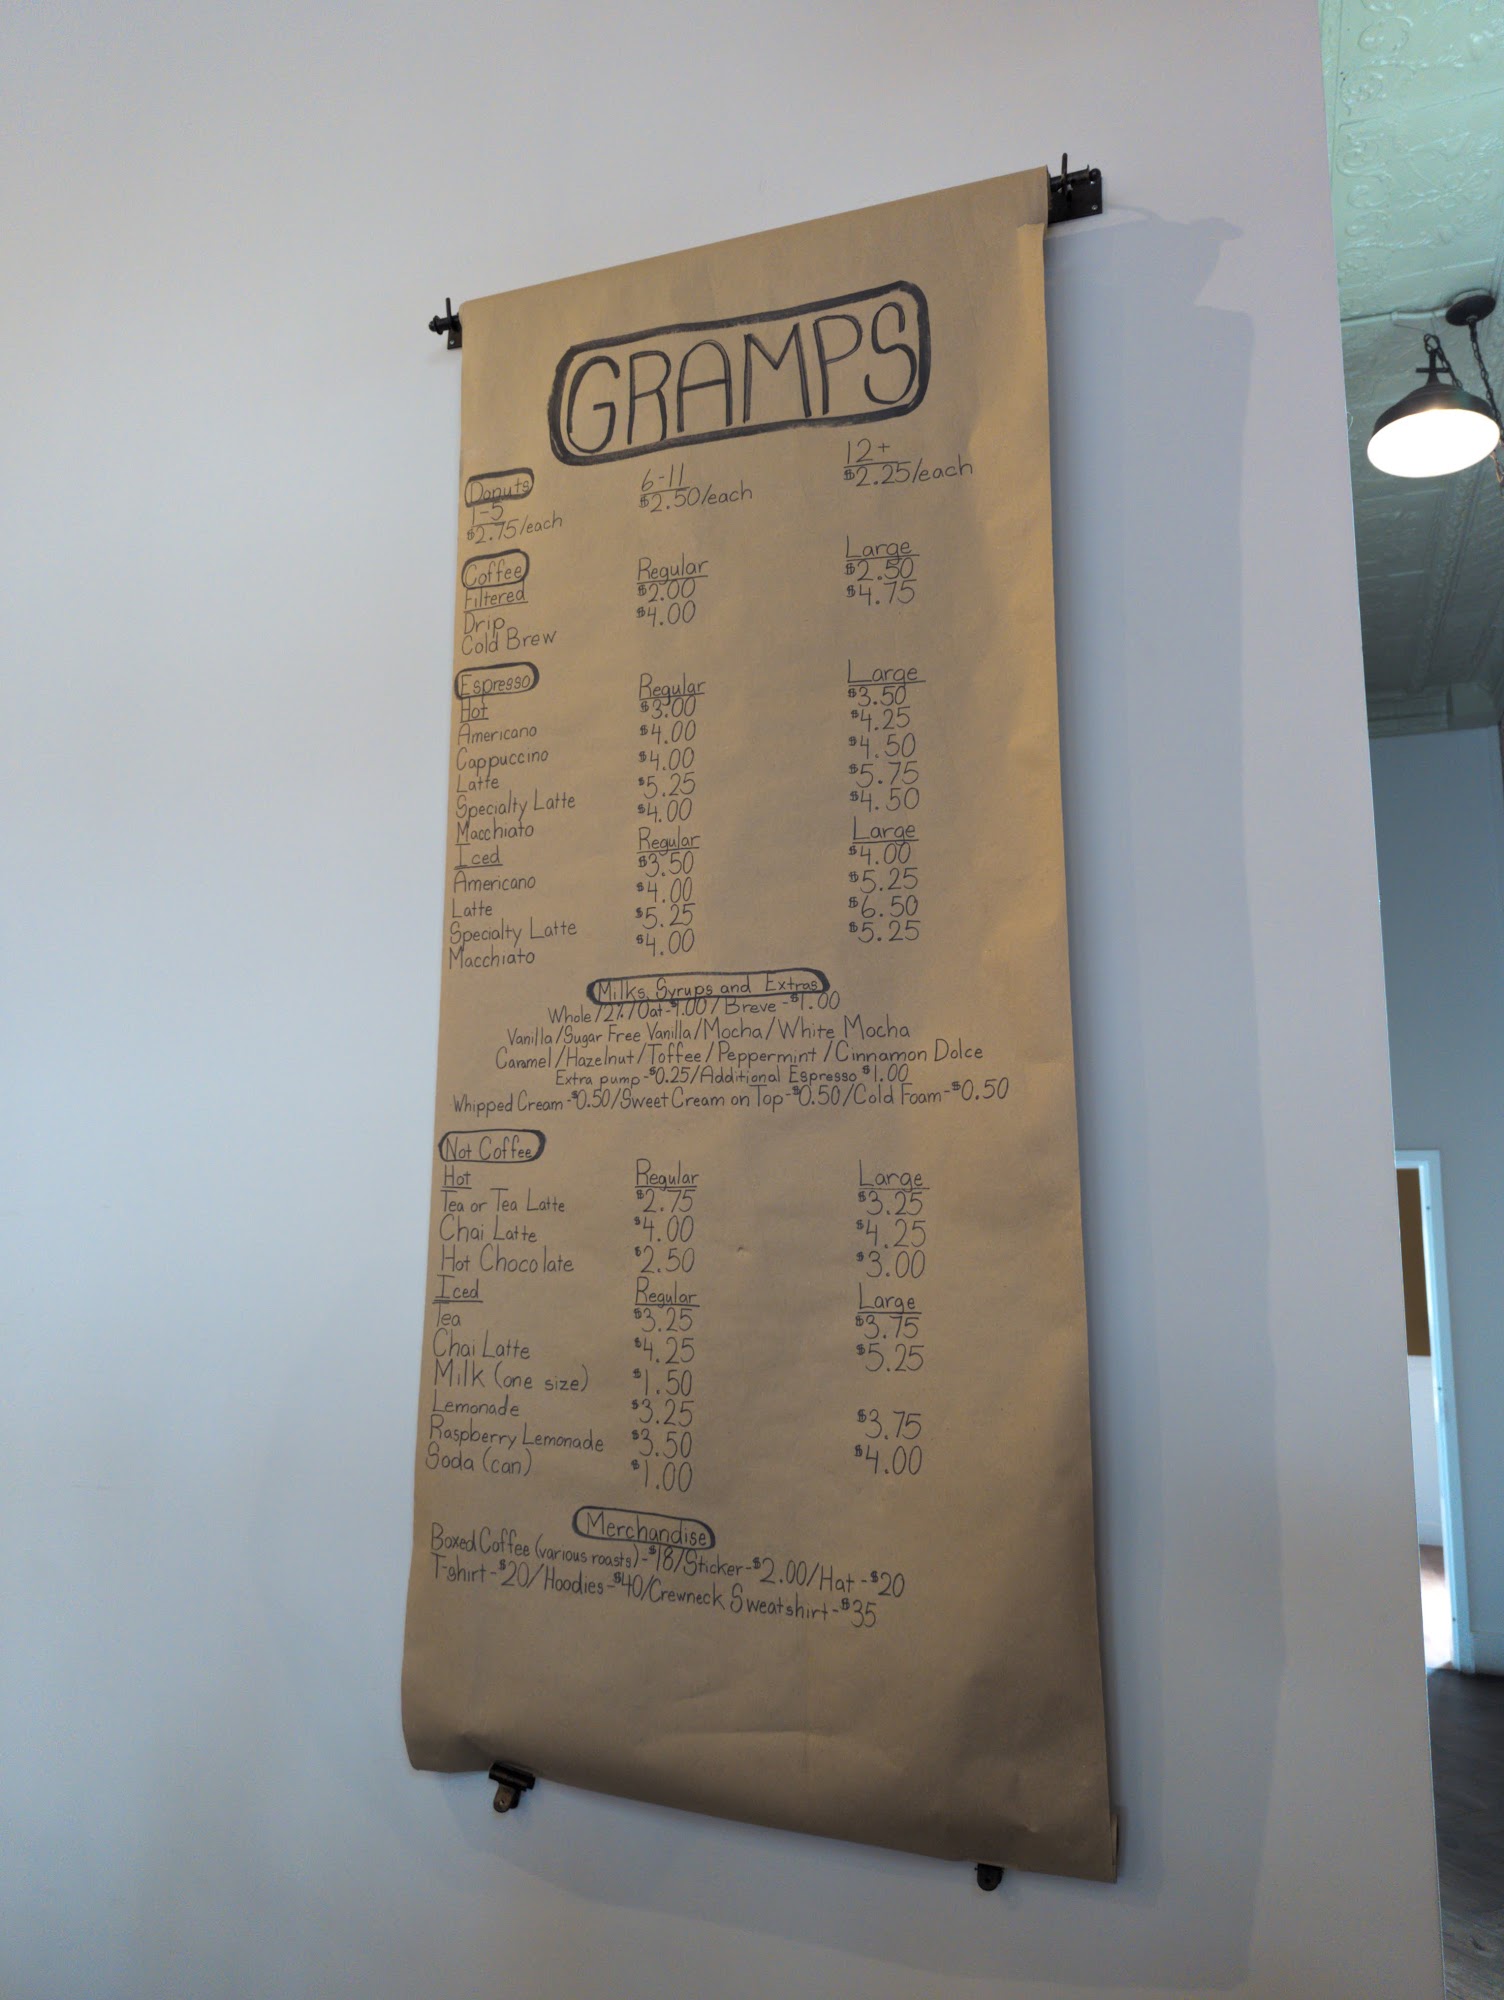 GRAMPS
Donuts
1-5 6-11 12+
$2.75/each $2.50/each $2.25/each
Coffee
Filtered Regular Large
Drip $2.00 $2.50
Cold Brew $4.00 $4.75
Espresso
Hot Regular Large
Americano $3.00 $3.50
Cappuccino $4.00 $4.25
Latte $4.00 $4.50
Specialty Latte $5.25 $5.75
Macchiato $4.00 $4.50
Iced Regular Large
Americano $3.50 $4.00
Latte $4.00 $5.25
Specialty Latte $5.25 $6.50
Macchiato $4.00 $5.25
Milks, Syrups and Extras
Whole/2%/Oat-$1.00/Breve-$1.00
Vanilla/Sugar Free Vanilla/Mocha/White Mocha
Caramel/Hazelnut/Toffee/Peppermint/Cinnamon Dolce
Extra pump-$0.25/Additional Espresso $1.00
Whipped Cream-$0.50/Sweet Cream on Top-$0.50/Cold Foam-$0.50
Not Coffee
Hot Regular Large
Tea or Tea Latte $2.75 $3.25
Chai Latte $4.00 $4.25
Hot Chocolate $2.50 $3.00
Iced Regular Large
Tea $3.25 $3.75
Chai Latte $4.25 $5.25
Milk (one size) $1.50
Lemonade $3.25 $3.75
Raspberry Lemonade $3.50 $4.00
Soda (can) $1.00
Merchandise
Boxed Coffee (various roasts)-$18/Sticker-$2.00/Hat-$20
T-shirt-$20/Hoodies-$40/Crewneck Sweatshirt-$35